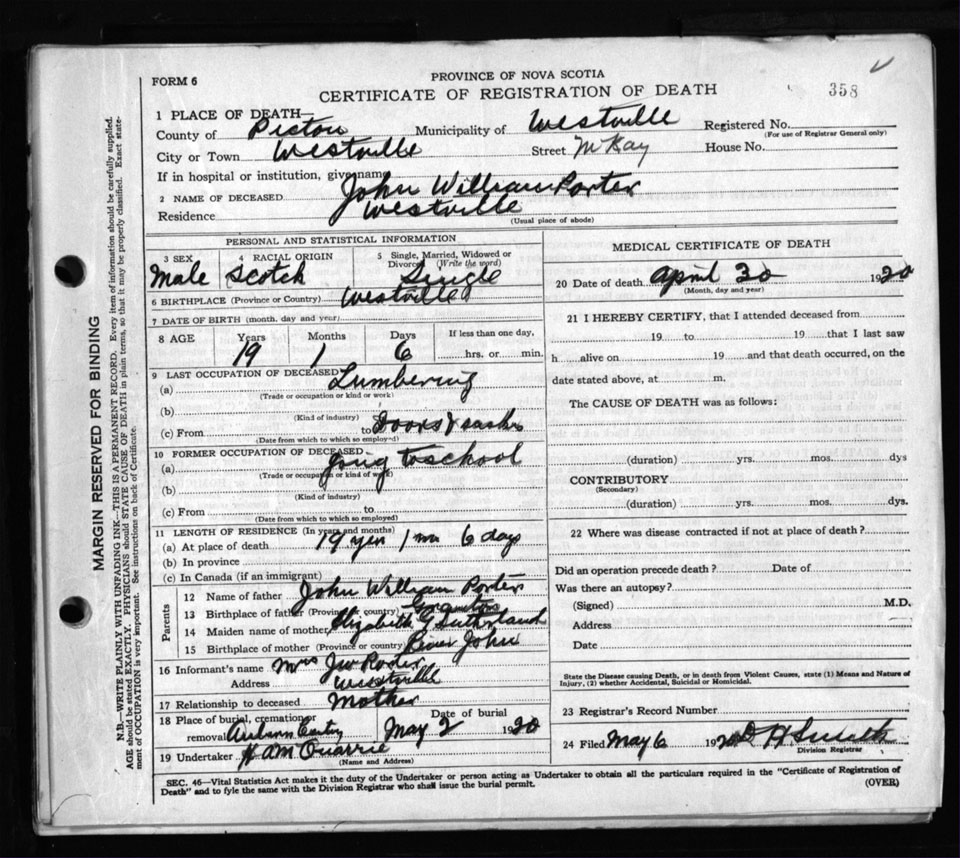 FORM 6
PROVINCE OF NOVA SCOTIA
CERTIFICATE OF REGISTRATION OF DEATH
358
1 PLACE OF DEATH—
County of Pictou Municipality of Westville Registered No.
(For use of Registrar General only)
City or Town Westville Street McKay House No.
If in hospital or institution, give name
2 NAME OF DECEASED John William Porter
Residence Westville
(Usual place of abode)
PERSONAL AND STATISTICAL INFORMATION
3 SEX Male
4 RACIAL ORIGIN Scotch
5 Single, Married, Widowed or Divorced (Write the word) Single
6 BIRTHPLACE (Province or Country) Westville
7 DATE OF BIRTH (month, day and year)
8 AGE Years 19 Months 1 Days 6 If less than one day, hrs. or min.
9 LAST OCCUPATION OF DECEASED
(a) Lumbering
(Trade or occupation or kind or work)
(b)
(Kind of industry)
(c) From to Doors &
(Date from which to which so employed)
10 FORMER OCCUPATION OF DECEASED
(a) going to school
(Trade or occupation or kind of work)
(b)
(Kind of industry)
(c) From to
(Date from which to which so employed)
11 LENGTH OF RESIDENCE (In years and months)
(a) At place of death 19 yrs 1 mo 6 days
(b) In province
(c) In Canada (if an immigrant)
Parents
12 Name of father John William Porter
13 Birthplace of father (Province or country)
14 Maiden name of mother Elizabeth G Sutherland
15 Birthplace of mother (Province or country) River John
16 Informant's name Mrs J W Porter
Address Westville
17 Relationship to deceased Mother
18 Place of burial, cremation or removal Auburn Date of burial May 2 1920
19 Undertaker H A McQuarrie
(Name and Address)
MEDICAL CERTIFICATE OF DEATH
20 Date of death April 30 1920
(Month, day and year)
21 I HEREBY CERTIFY, that I attended deceased from
19 to 19 that I last saw
h alive on 19 and that death occurred, on the
date stated above, at m.
The CAUSE OF DEATH was as follows:
(duration) yrs. mos. dys
CONTRIBUTORY
(Secondary)
(duration) yrs. mos. dys.
22 Where was disease contracted if not at place of death?
Did an operation precede death? Date of
Was there an autopsy?
(Signed) M.D.
Address
Date
State the Disease causing Death, or in death from Violent Causes, state (1) Means and Nature of
Injury, (2) whether Accidental, Suicidal or Homicidal.
23 Registrar's Record Number
24 Filed May 6 1920 D H Smith
Division Registrar
SEC. 46—Vital Statistics Act makes it the duty of the Undertaker or person acting as Undertaker to obtain all the particulars required in the "Certificate of Registration of
Death" and to fyle the same with the Division Registrar who shall issue the burial permit.
(OVER)
MARGIN RESERVED FOR BINDING
N.B.—WRITE PLAINLY WITH UNFADING INK—THIS IS A PERMANENT RECORD. Every item of information should be carefully supplied.
AGE should be stated EXACTLY. PHYSICIANS should STATE CAUSE OF DEATH in plain terms, so that it may be properly classified. Exact state-
ment of OCCUPATION is very important. See instructions on back of Certificate.